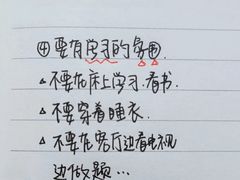 ④要有学习的氛围.
△不要在床上学习.看书.
△不要穿着睡衣.
△不要在客厅边看电视
边做题…